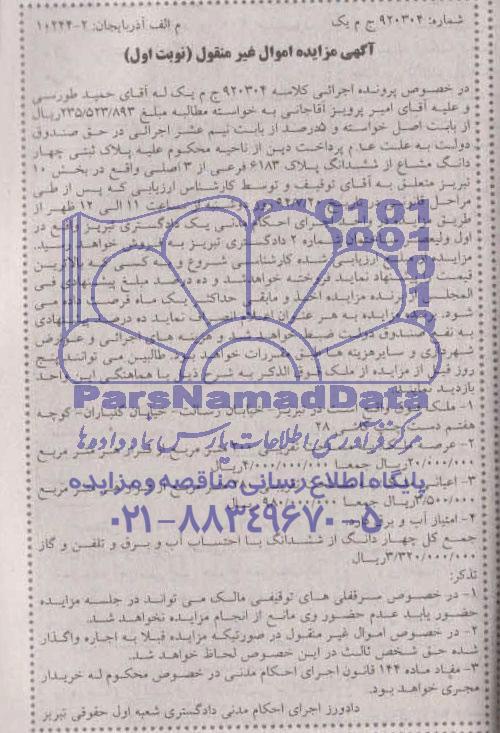 شماره: ۹۲۰۳۰۴ ج م یک
م الف آذربایجان: ۲-۱۰۲۴۴
آگهی مزایده اموال غیر منقول (نوبت اول)
در خصوص پرونده اجرائی کلاسه ۹۲۰۳۰۴ ج م یک له آقای حمید طورسی
و علیه آقای امیر پرویز آقاجانی به خواسته مطالبه مبلغ ۲۳۵/۵۲۳/۸۹۳ریال
از بابت اصل خواسته و ۵درصد از بابت نیم عشر اجرائی در حق صندوق
دولت به علت عدم پرداخت دین از ناحیه محکوم علیه پلاک ثبتی چهار
دانگ مشاع از ششدانگ پلاک ۶۱۸۳ فرعی از ۳ اصلی واقع در بخش ۱۰
تبریز متعلق به آقای توقیف و توسط کارشناس ارزیابی که پس از طی
مراحل ساعت ۱۱ الی ۱۲ ظهر از
طریق اجرای احکام مدنی یک دادگستری تبریز واقع در
اول ولیعصر ساختمان شماره ۲ دادگستری تبریز به فروش خواهد
مزایده از ارزیابی شده کارشناسی شروع و به کسی که بالاترین
قیمت پیشنهاد نماید فروخته خواهد شد و ده درصد مبلغ پیشنهادی فی
المجلس از برنده مزایده اخذ و مابقی حداکثر یک ماه فرصت داده می
شود برنده مزایده به هر عنوان انصراف نماید ده درصد پیشنهادی
به نفع صندوق دولت ضبط خواهد شد و هزینه های اجرائی و عوارض
شهرداری و سایر هزینه ها طبق مقررات خواهد بود. طالبین می توانند پنج
روز قبل از مزایده از ملک فوق الذکر به شرح ذیل با هماهنگی این واحد
بازدید نمایند.
۱- ملک فوق واقع است در تبریز- خیابان رسالت- خیابان گلکاران- کوچه
هفتم دست ۲۸
۲- عرصه متر مربع
۲۰/۰۰۰/۰۰۰ریال جمعا ۲/۰۰۰/۰۰۰/۰۰۰ریال
۳- اعیانی متر مربع
۳/۵۰۰/۰۰۰ریال جمعا ۹۸۰/۰۰۰/۰۰۰ ریال
۴- امتیاز آب و برق
جمع کل چهار دانگ از ششدانگ با احتساب آب و برق و تلفن و گاز
۳/۳۲۰/۰۰۰/۰۰۰ریال
تذکر:
۱- در خصوص سرقفلی های توقیفی مالک می تواند در جلسه مزایده
حضور یابد عدم حضور وی مانع از انجام مزایده نخواهد شد.
۲- در خصوص اموال غیر منقول در صورتیکه مزایده قبلا به اجاره واگذار
شده حق شخص ثالث در این خصوص لحاظ خواهد شد.
۳- مفاد ماده ۱۴۴ قانون اجرای احکام مدنی در خصوص محکوم له خریدار
مجری خواهد بود.
دادورز اجرای احکام مدنی دادگستری شعبه اول حقوقی تبریز
ParsNamadData
مرکز فرآوری اطلاعات پارس نماد داده ها
پایگاه اطلاع رسانی مناقصه و مزایده
۰۲۱-۸۸۳۴۹۶۷۰-۵